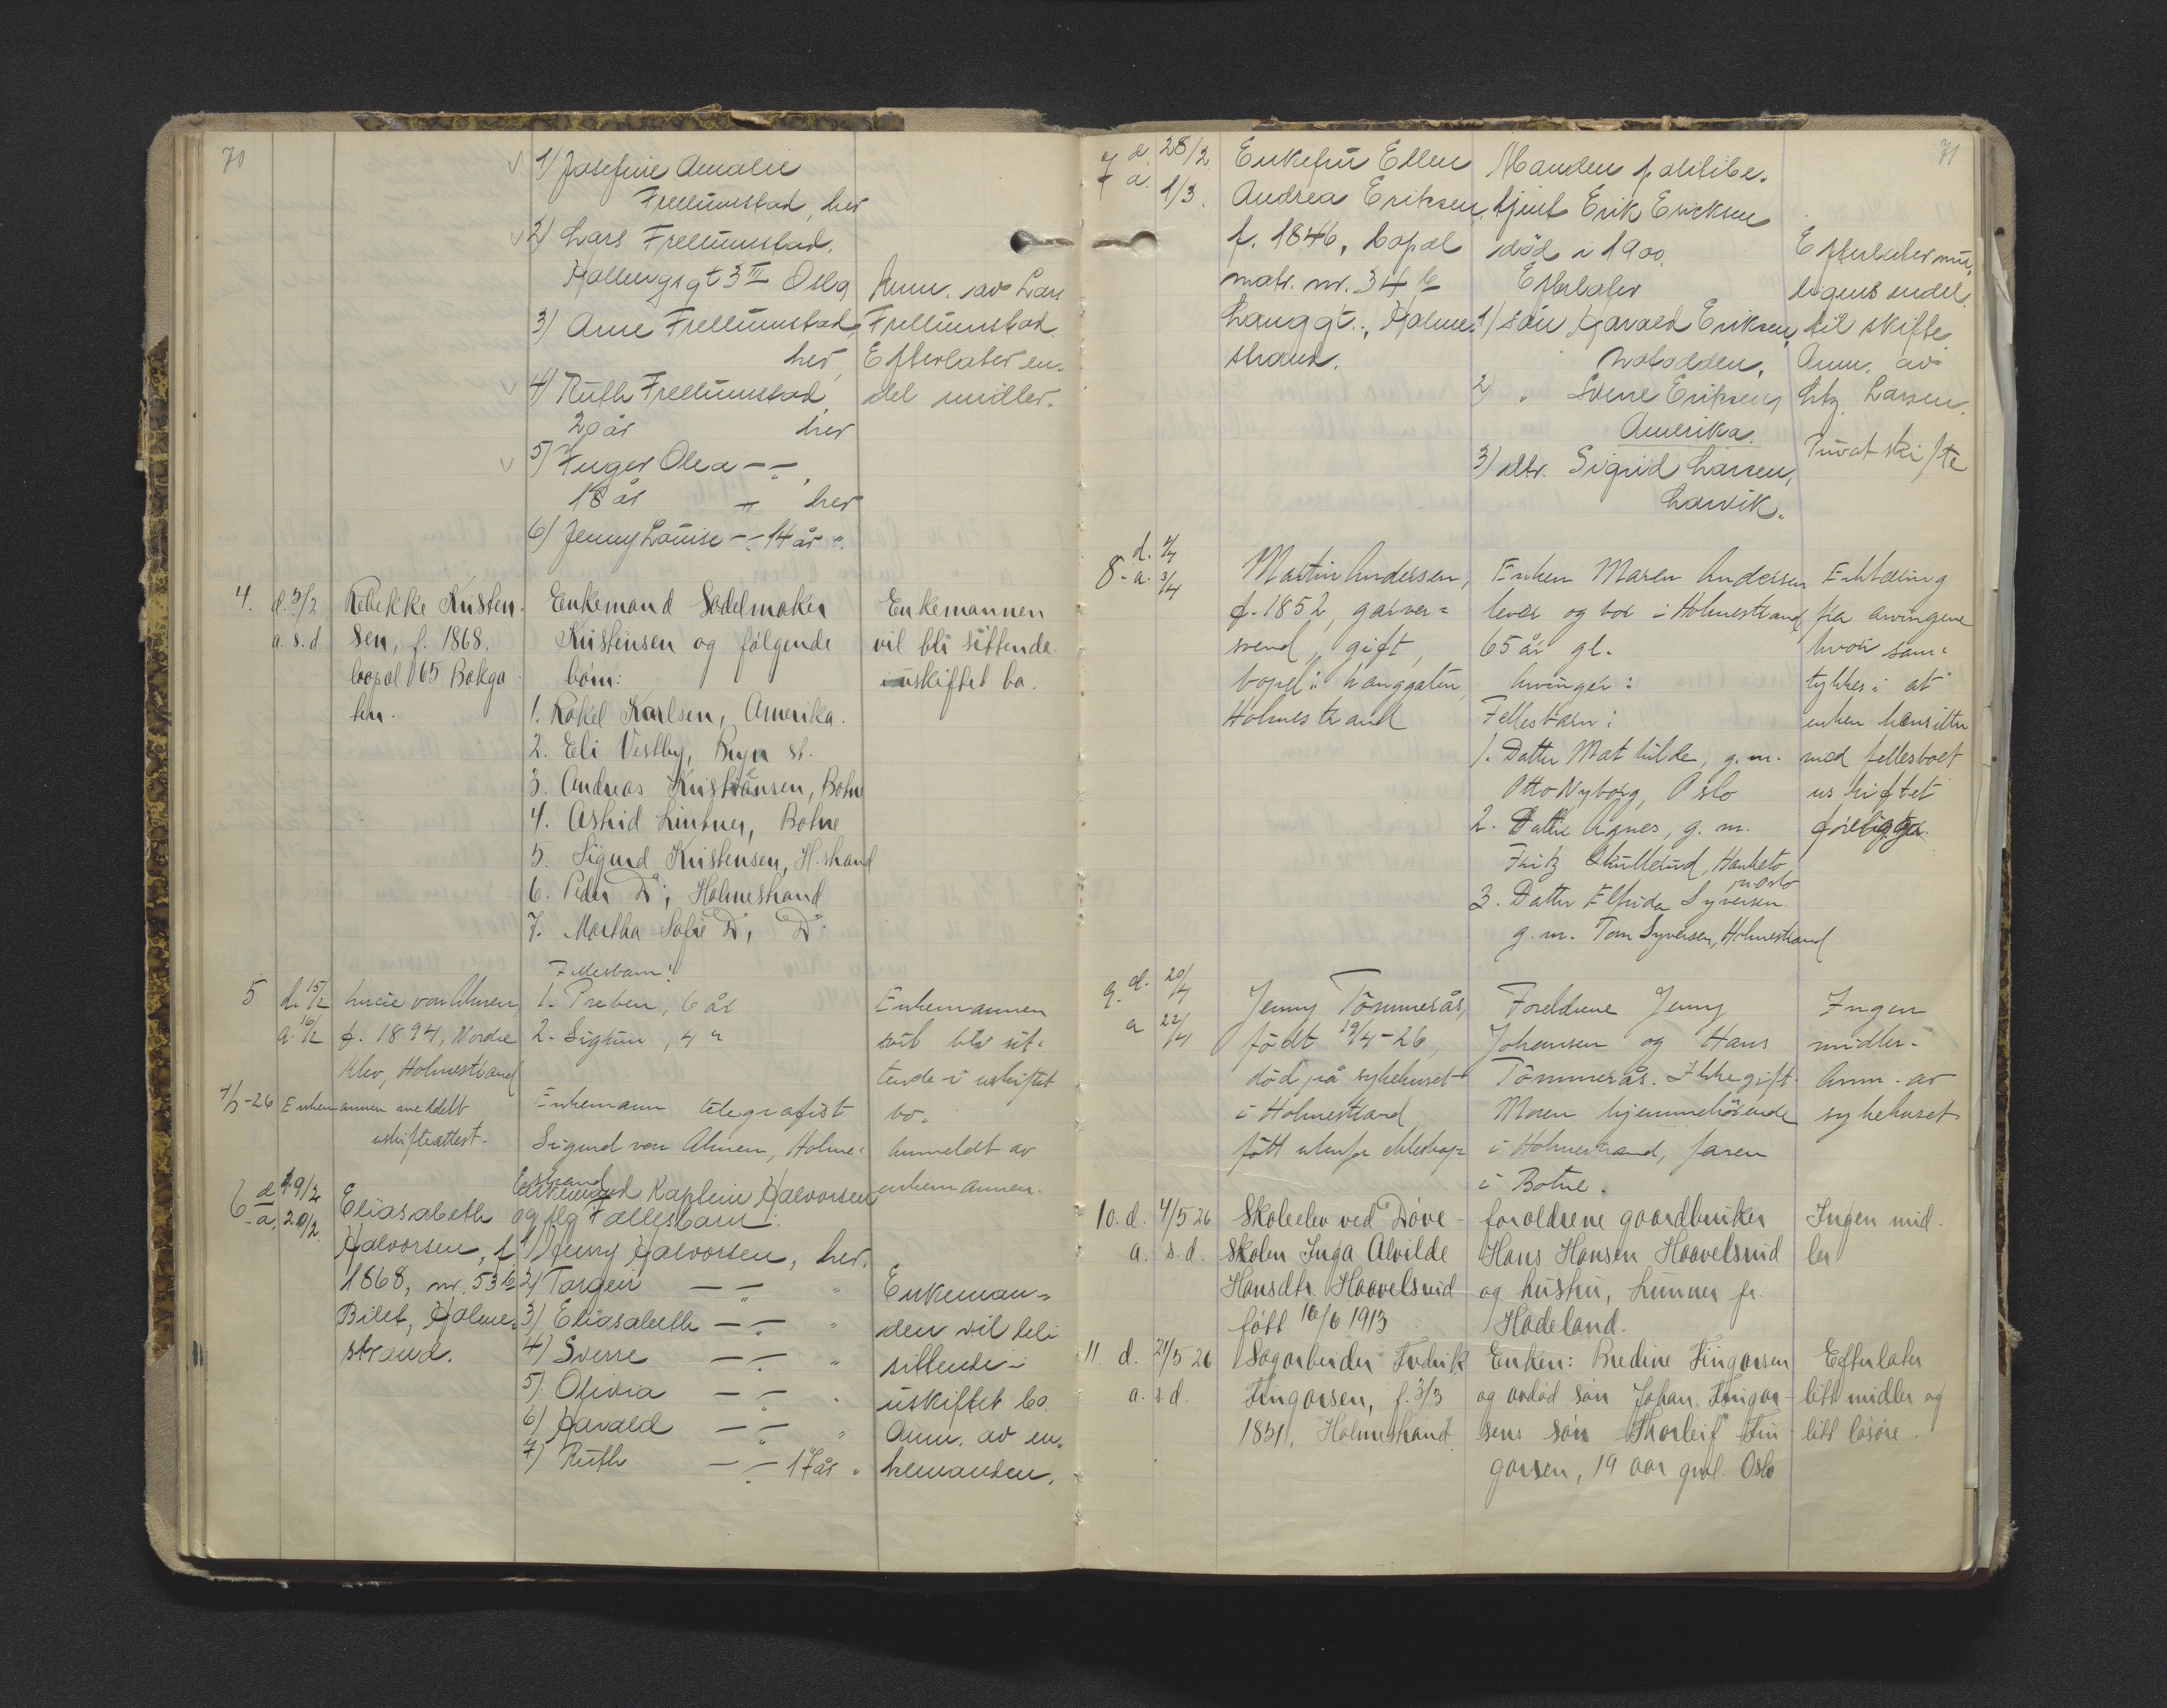 70
1) Josefine Amalie
Frellumstad, her
2) Lars Frellumstad,
3 III Oslo
3) Arne Frellumstad,
her,
4) Ruth Frellumstad,
20 år her
5) Inger Olea — " —,
18 år — her
6) Jenny Louise — " — 14 år ".
Anm. av Lars
Frellumstad.
Efterlater en-
del midler.
4. d. 5/2
a. s. d.
Rebekke Kristen-
sen, f. 1868.
bopæl 165 Bakga-
ten.
Enkemand Sadelmaker
Kristensen og følgende
børn:
1. Rakel Karlsen, Amerika.
2. Eli Vestby, Bryn st.
3. Andreas Kristiansen, Botne
4. Astrid Lintner, Botne
5. Sigurd Kristensen, H.strand
6. Peder Do, Holmestrand
7. Martha Sofie Do, Do
Enkemannen
vil bli sittende
i uskiftet bo.
5 d. 15/2
a. 16/2
Lucie von Ahnen,
f. 1894, Nordre
Klev, Holmestrand
4/3-26 Enkemannen meddelt
uskifteattest.
Fellesbarn:
1. Preben, 6 år
2. Sigrun, 4 "
Enkemann telegrafist
Sigurd von Ahnen, Holme-
strand
Enkemannen
vil bli sit-
tende i uskiftet
bo.
Anmeldt av
enkemannen.
6 d 19/2
a. 20/2.
Eliasabeth
Halvorsen, f.
1868, nr. 53 b
Bilet, Holme-
strand.
Enkemand Kaptein Halvorsen
og flg Fællesbarn:
1) Jenny Halvorsen, her.
2) Torgeir — " — "
3) Eliasabeth — " — "
4) Sverre — " — "
5) Olivia — " — "
6) Harald — " — "
7) Ruth — " — 17 år "
Enkeman-
den vil bli
sittende i
uskiftet bo.
Anm. av en-
kemanden.
71
7 d. 28/2
a. 1/3.
Enkefru Ellen
Andrea Eriksen,
f. 1846, bopæl
matr. nr. 34 b
Langgt., Holme-
strand.
Manden politibe-
tjent Erik Ericksen
død i 1900.
Efterlater
1) søn Harald Eriksen,
Notodden,
2) " Sverre Eriksen,
Amerika.
3) dtr. Sigrid Larsen,
Larvik.
Efterlater mu-
ligens endel
til skifte
Anm. av
Larsen.
Privat skifte
8. d. 2/4
a. 3/4
Martin Andersen,
f. 1852, garver-
svend, gift,
bopel: Langgaten,
Holmestrand
Enken Maren Andersen
lever og bor i Holmestrand,
65 år gl.
Arvinger:
Fellesbarn:
1. Datter Mathilde, g. m.
Otto Nyborg, Oslo
2. Datter Agnes, g. m.
Fritz Skullerud, Hauketo
pr. Oslo
3. Datter Elfrida Syversen
g. m. Tom Syversen, Holmestrand
Erklæring
fra arvingene
hvori sam-
tykkes i at
enken hensitter
med fellesboet
uskiftet
foreligger.
9. d. 20/4
a 22/4
Jenny Tømmerås,
født 19/4-26,
død på sykehuset
i Holmestrand
født utenfor ekteskap
Foreldrene Jenny
Johansen og Hans
Tømmerås. Ikke gift.
Moren hjemmehörende
i Holmestrand, faren
i Botne.
Ingen
midler.
Anm. av
sykehuset
10. d. 4/5 26
a. s. d.
Skoleelev ved Døve-
skolen Inga Alvilde
Hansdtr. Haavelsrud
født 16/6 1913
foreldrene gaardbruker
Hans Hansen Haavelsrud
og hustru, Lunner pr.
Hadeland.
Ingen mid-
ler
11. d. 21/5 26
a. s d.
Sagarbeider Fredrik
Fingarsen, f. 3/3
1851, Holmestrand.
Enken: Bredine Fingarsen
og avdød søn Johan Fingar-
sens søn Thorleif Fin-
garsen, 19 aar gml. Oslo
Efterlater
litt midler og
litt løsøre.